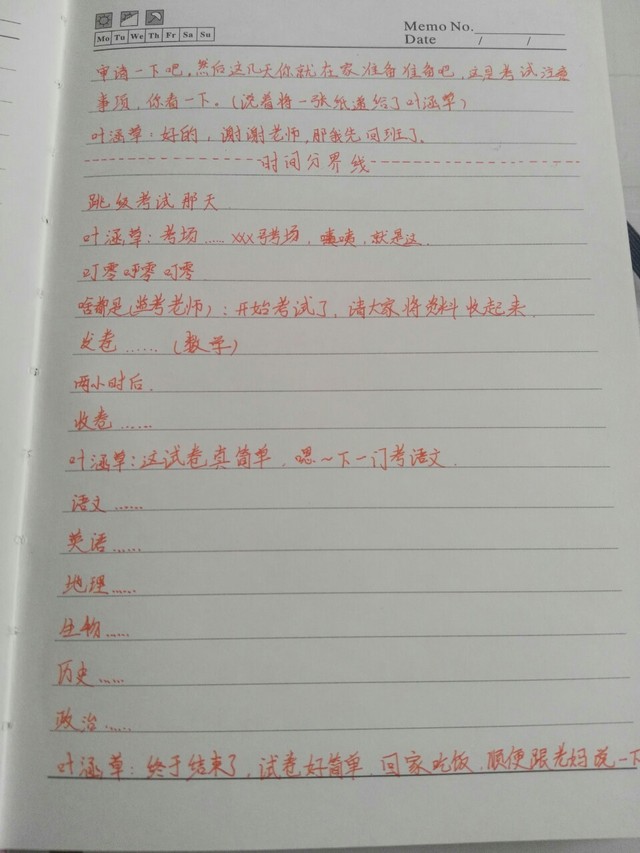 Memo No.
Mo Tu We Th Fr Sa Su
Date / /
申请一下吧,然后这几天你就在家准备准备吧,这是考试注意
事项,你看一下。(说着将一张纸递给了叶涵草)
叶涵草:好的,谢谢老师,那我先回班了.
时间分界线
跳级考试那天
叶涵草:考场……xxx号考场,咦咦,就是这.
叮零叮零叮零
啥都是(监考老师):开始考试了,请大家将资料收起来.
发卷……(数学)
两小时后.
收卷……
叶涵草:这试卷真简单.嗯~下一门考语文.
语文……
英语……
地理……
生物……
历史……
政治……
叶涵草:终于结束了,试卷好简单.回家吃饭.顺便跟老妈说一下